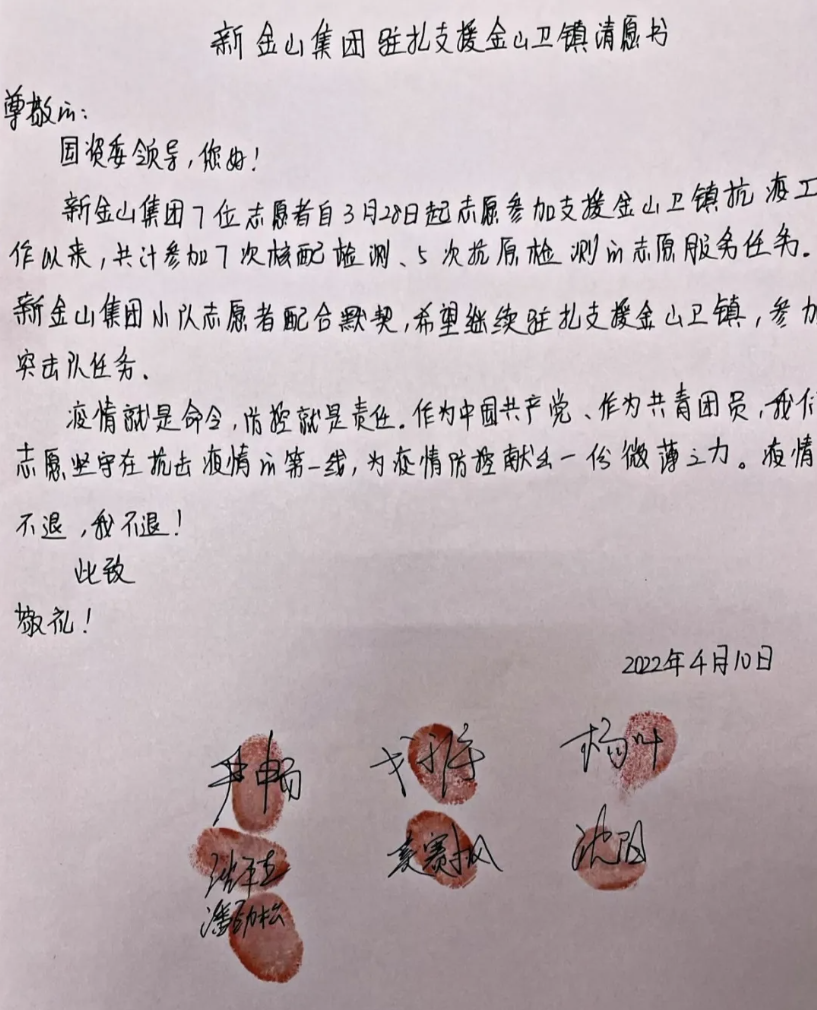 新金山集团驻扎支援金山卫镇请愿书
尊敬的:
国资委领导,您好!
新金山集团7位志愿者自3月28日起志愿参加支援金山卫镇抗疫工
作以来,共计参加7次核酸检测、5次抗原检测的志愿服务任务。
新金山集团小队志愿者配合默契,希望继续驻扎支援金山卫镇,参加
突击队任务.
疫情就是命令,防控就是责任.作为中国共产党、作为共青团员,我们
志愿坚守在抗击疫情的第一线,为疫情防控献出一份微薄之力。疫情
不退,我不退!
此致
敬礼!
2022年4月10日
尹畅 杨叶
沈阳
潘劲松